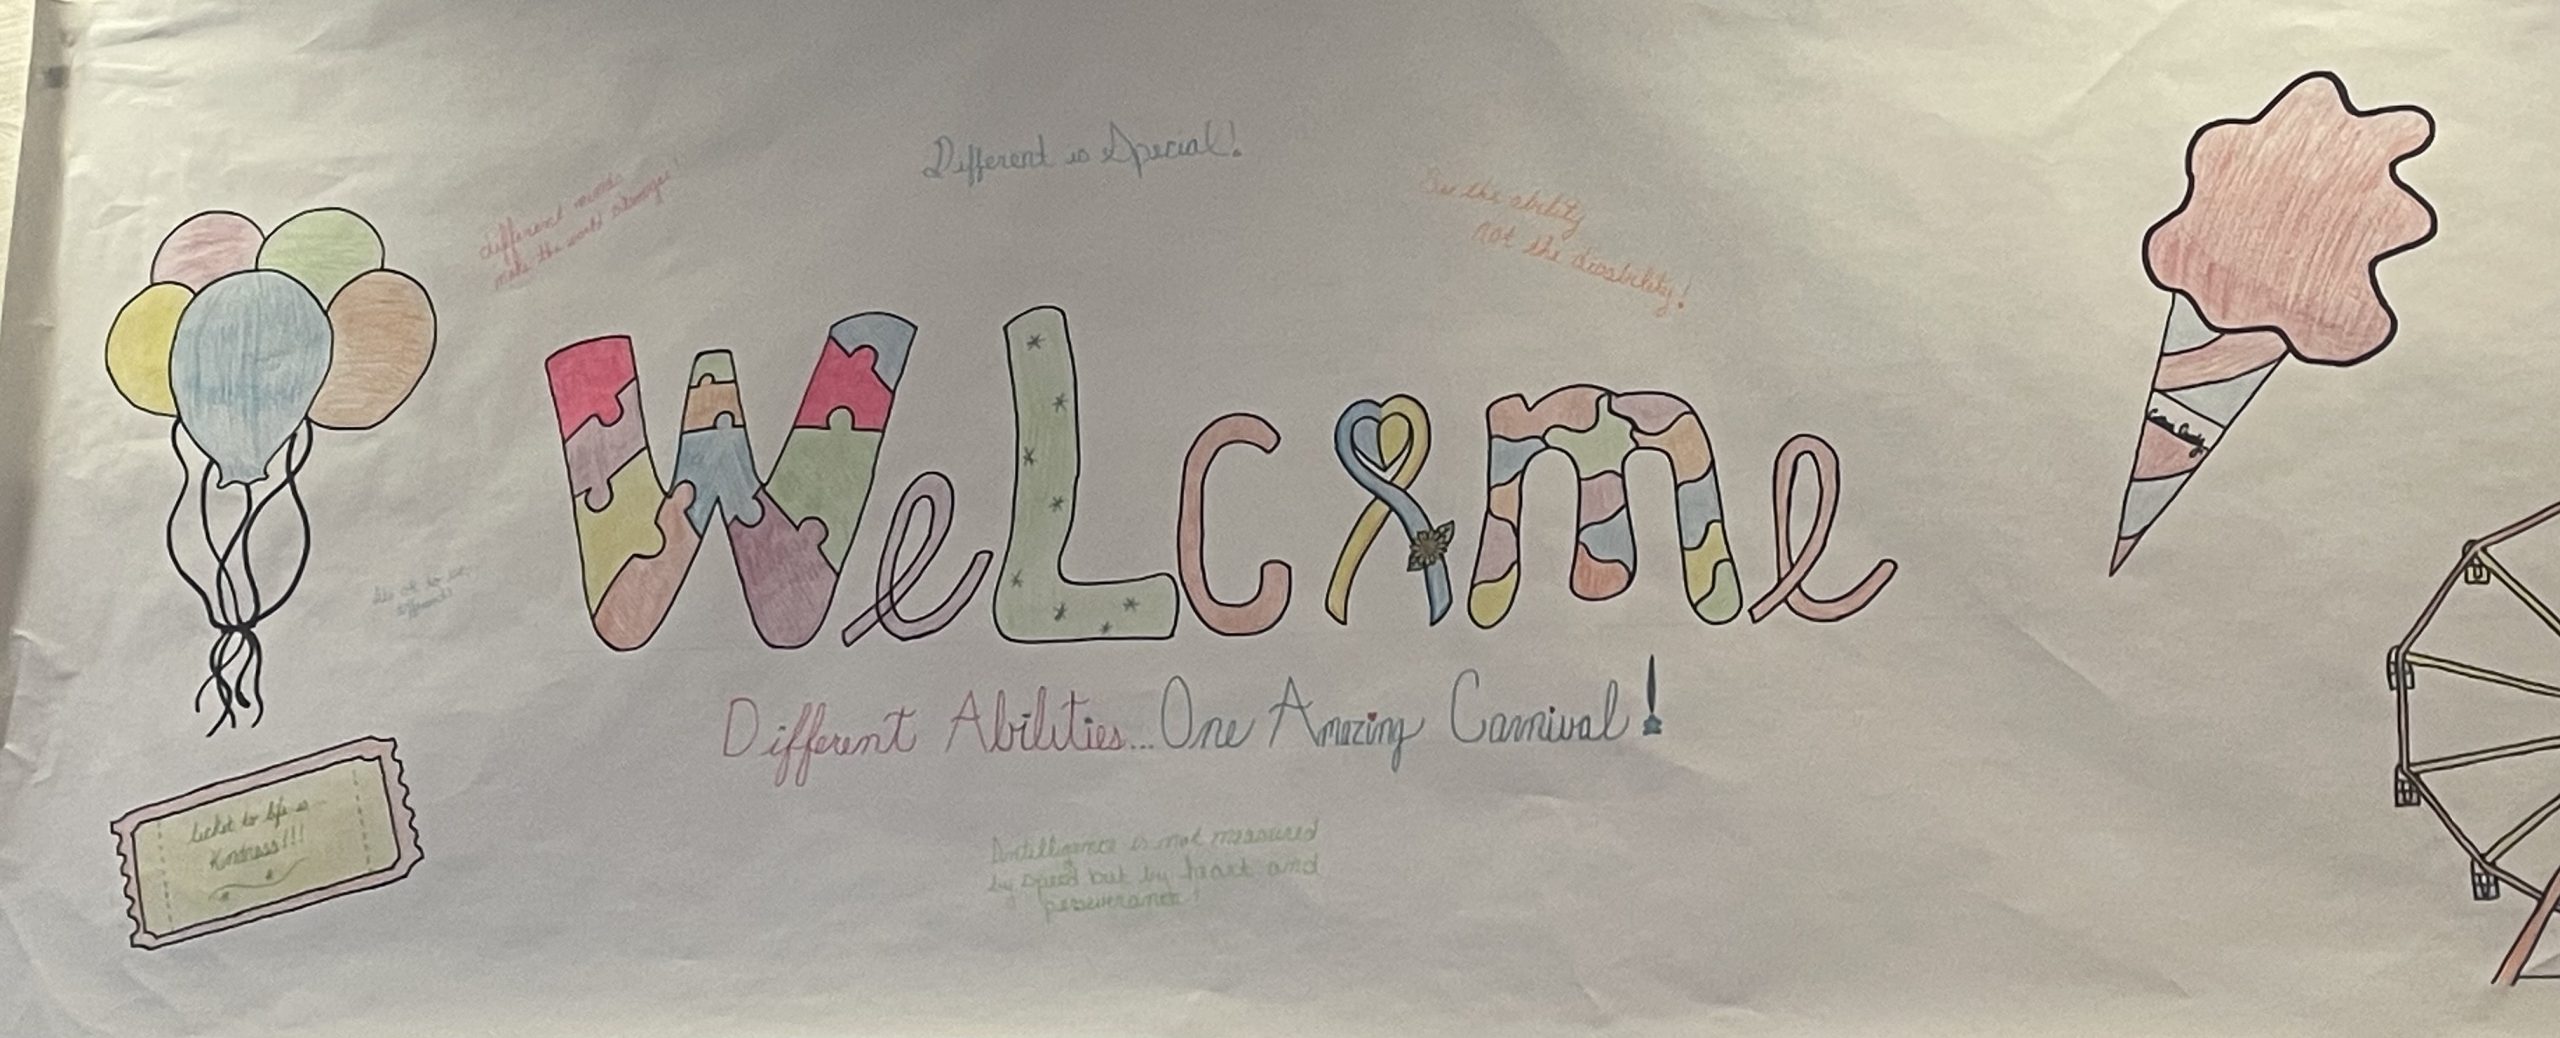 Different is Special!
different minds
make the world
See the ability
not the disability!
WeLcome
its ok to be
different!
Different Abilities...One Amazing Carnival!
Cotton Candy
ticket to life is
Kindness!!!
Intelligence is not measured
by speed but by heart and
perseverance!